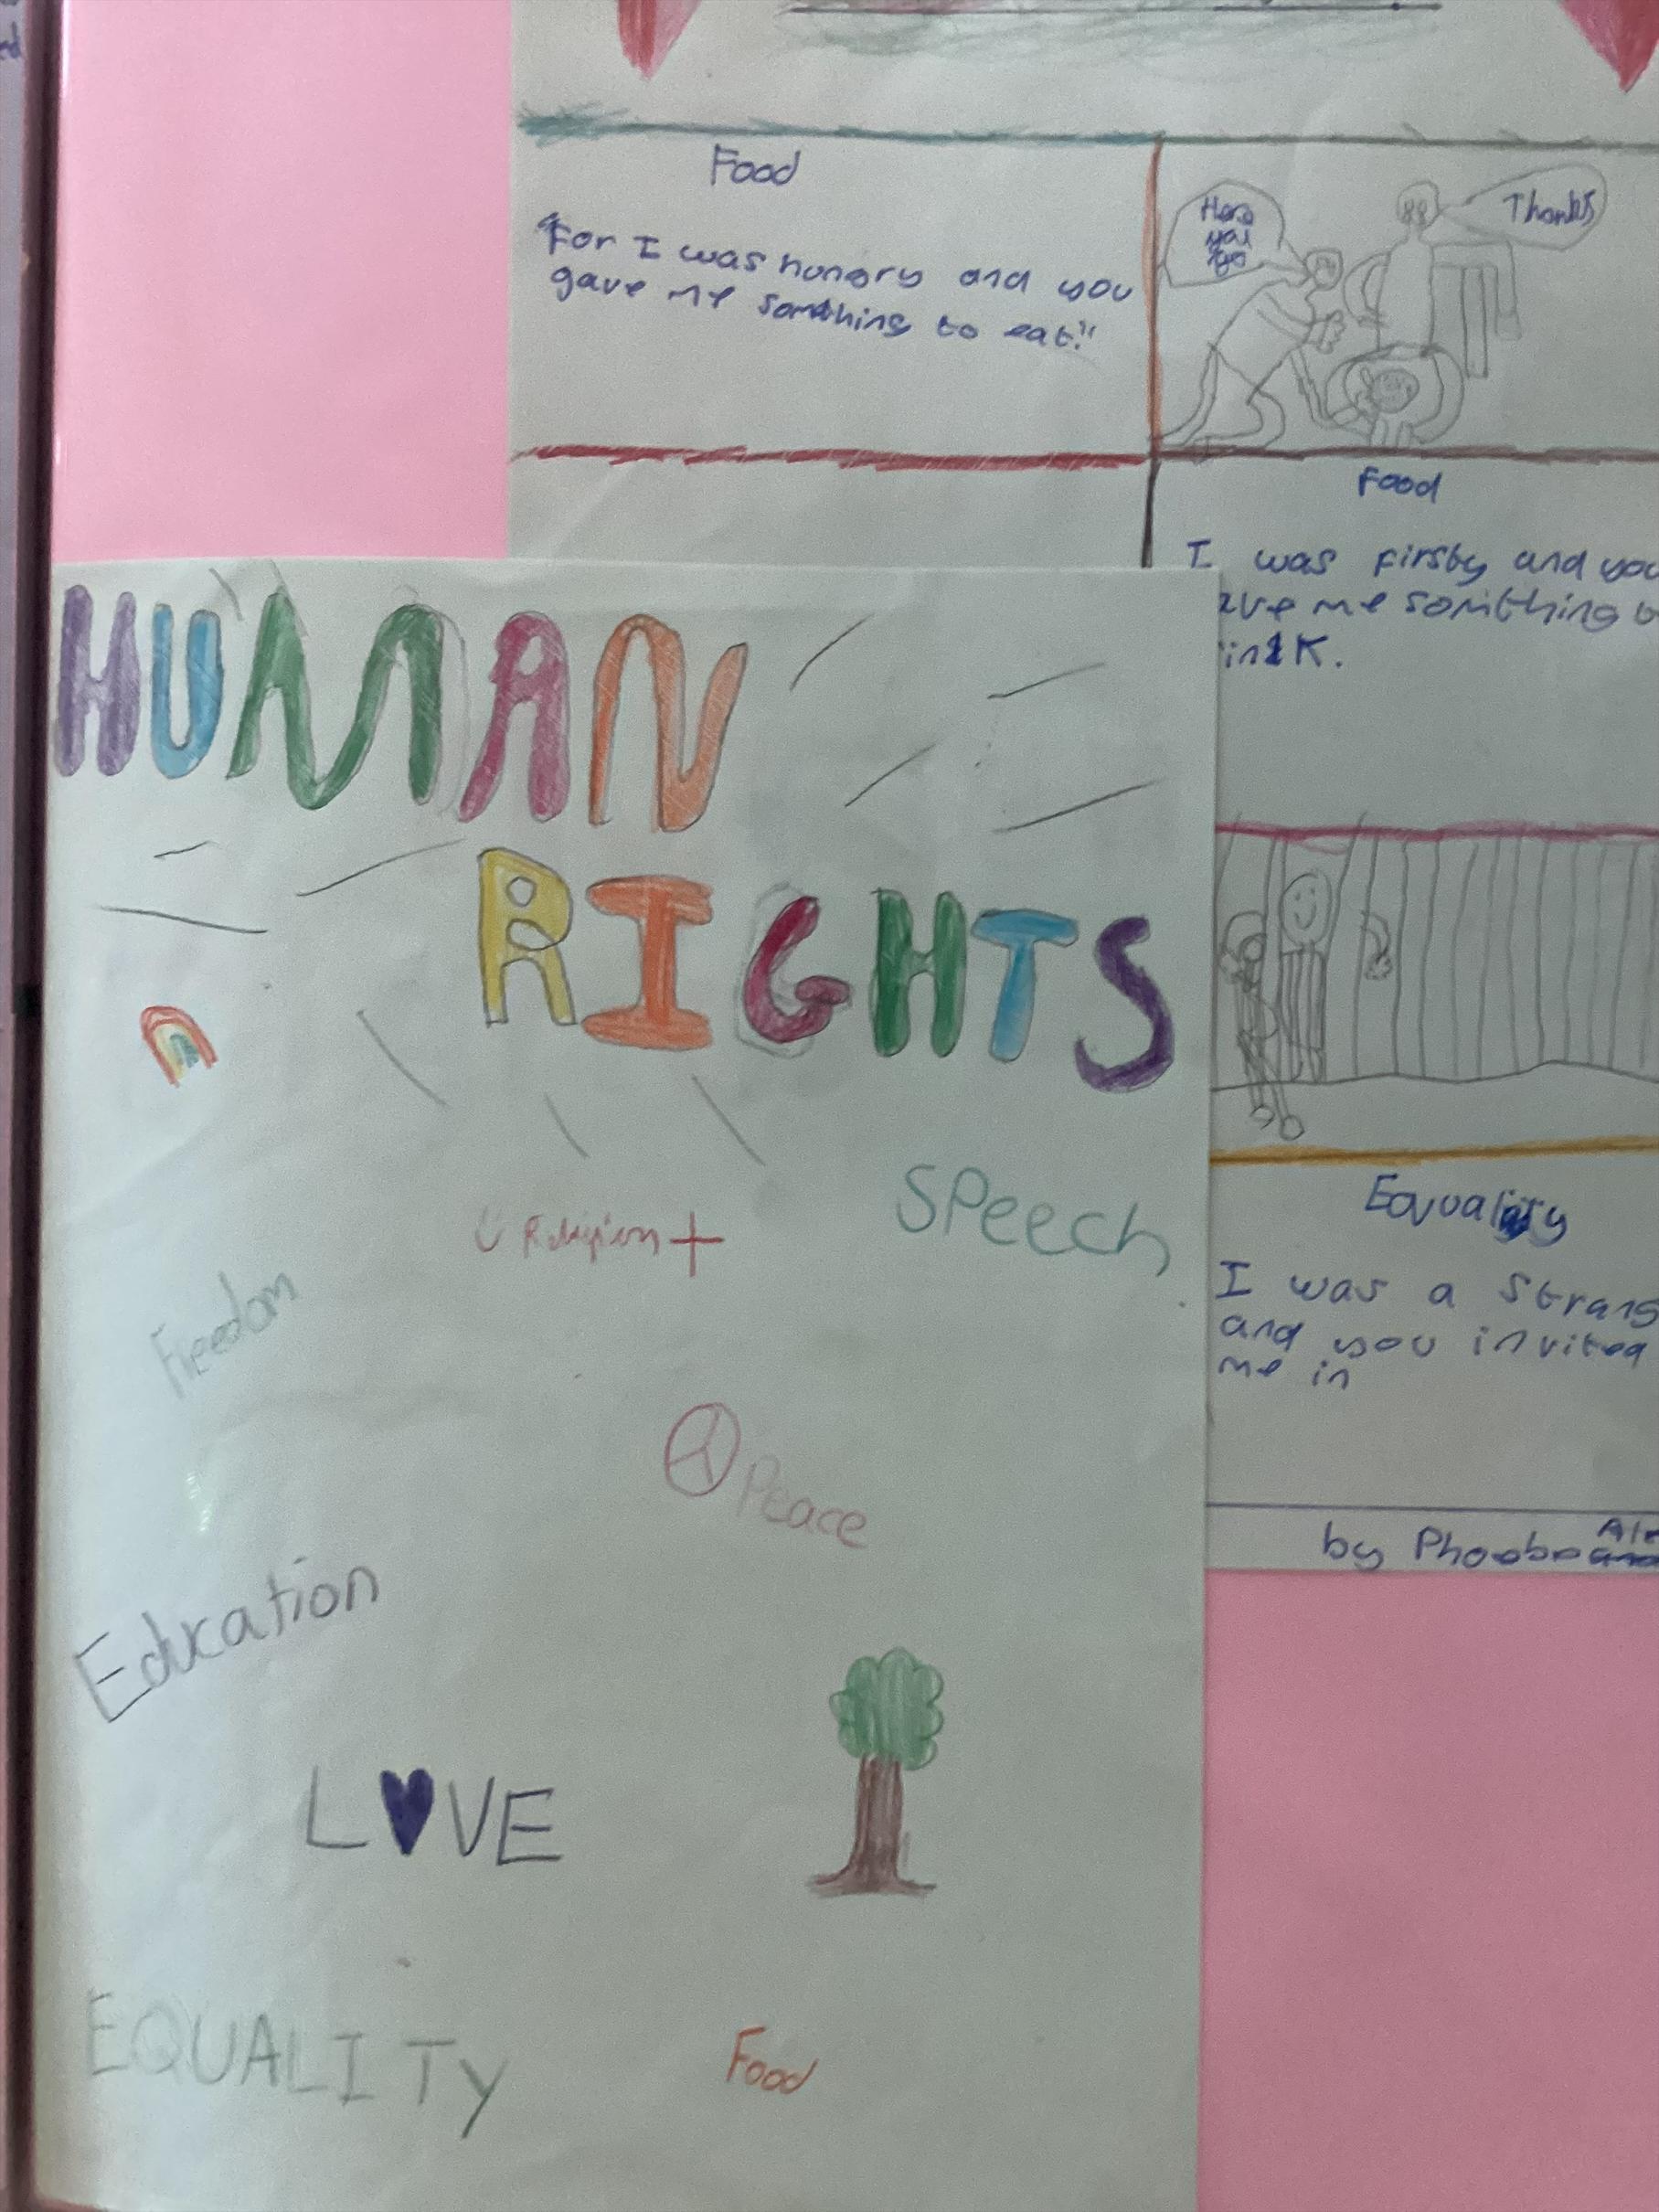 Food
"For I was hungry and you
gave me somthing to eat."
Here
you
go
Thanks
Food
I was firsty and you
ave me somithing
in1K.
Equality
I was a Strang
and you invited
me in
by Phoebe
HUMAN
RIGHTS
Religion
Speech
Freedom
Peace
Education
LOVE
EQUALITY
Food